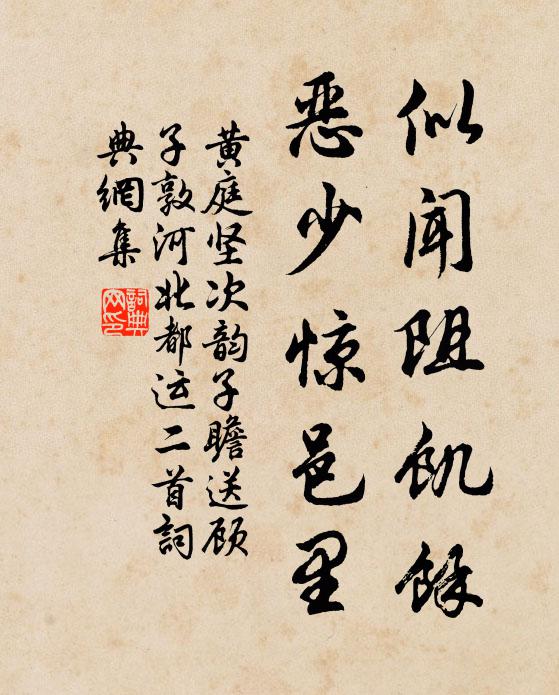 似闻阻饥餘
恶少惊邑里
黄庭坚次韵子瞻送顾
子敦河北都运二首詞
典網集
詞典
网印